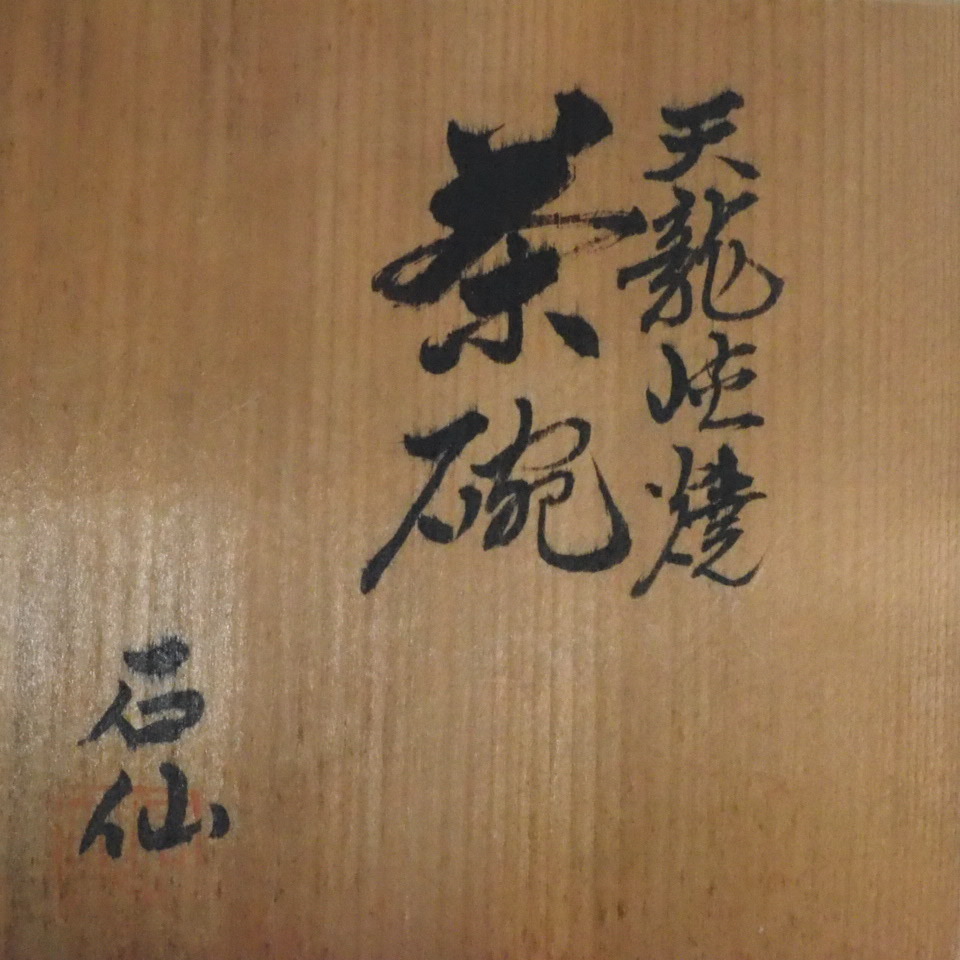 天龍峡焼
茶碗
石仙